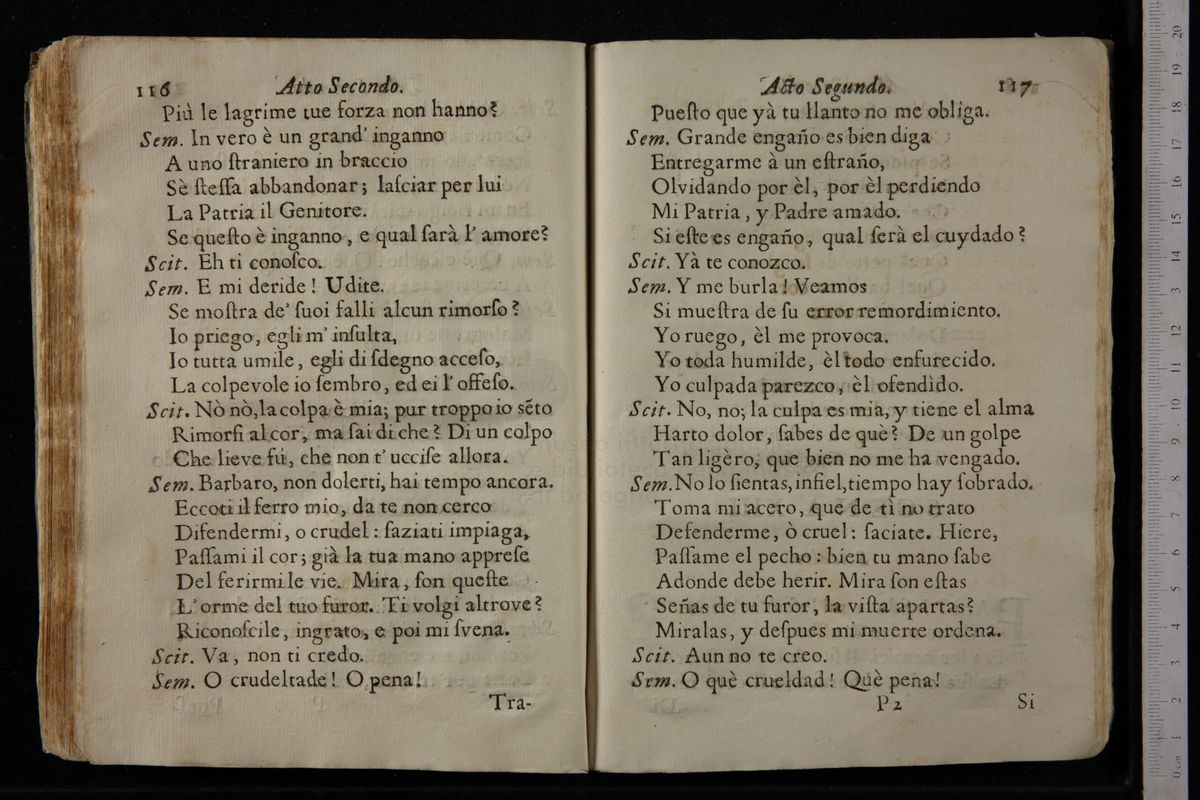 116 Atto Secondo.
Più le lagrime tue forza non hanno?
Sem. In vero è un grand' inganno
A uno ſtraniero in braccio
Sè ſteſſa abbandonar; laſciar per lui
La Patria il Genitore.
Se queſto è inganno, e qual ſarà l' amore?
Scit. Eh ti conoſco.
Sem. E mi deride! Udite.
Se moſtra de' ſuoi falli alcun rimorſo?
Io priego, egli m' inſulta,
Io tutta umile, egli di ſdegno acceſo,
La colpevole io ſembro, ed ei l' offeſo.
Scit. Nò nò, la colpa è mia; pur troppo io sẽto
Rimorſi al cor, ma ſai di che? Di un colpo
Che lieve fú, che non t' ucciſe allora.
Sem. Barbaro, non dolerti, hai tempo ancora.
Eccoti il ferro mio, da te non cerco
Difendermi, o crudel: ſaziati impiaga,
Paſſami il cor; già la tua mano appreſe
Del ferirmi le vie. Mira, ſon queſte
L' orme del tuo furor. Ti volgi altrove?
Riconoſcile, ingrato, e poi mi ſvena.
Scit. Va, non ti credo.
Sem. O crudeltade! O pena!
Tra-
Acto Segundo. 117
Pueſto que yà tu llanto no me obliga.
Sem. Grande engaño es bien diga
Entregarme à un eſtraño,
Olvidando por èl, por èl perdiendo
Mi Patria, y Padre amado.
Si eſte es engaño, qual ſerà el cuydado?
Scit. Yà te conozco.
Sem. Y me burla! Veamos
Si mueſtra de ſu error remordimiento.
Yo ruego, èl me provoca.
Yo toda humilde, èl todo enfurecido.
Yo culpada parezco, èl ofendìdo.
Scit. No, no; la culpa es mia, y tiene el alma
Harto dolor, ſabes de què? De un golpe
Tan ligèro, que bien no me ha vengado.
Sem. No lo ſientas, infiel, tiempo hay ſobrado.
Toma mi acero, que de tì no trato
Defenderme, ò cruel: ſaciate. Hiere,
Paſſame el pecho: bien tu mano ſabe
Adonde debe herir. Mira ſon eſtas
Señas de tu furor, la viſta apartas?
Miralas, y deſpues mi muerte ordena.
Scit. Aun no te creo.
Sem. O què crueldad! Què pena!
P 2 Si